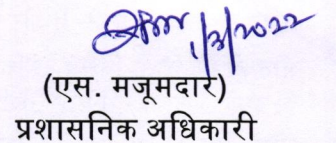 1/3/2022
(एस. मजूमदार)
प्रशासनिक अधिकारी